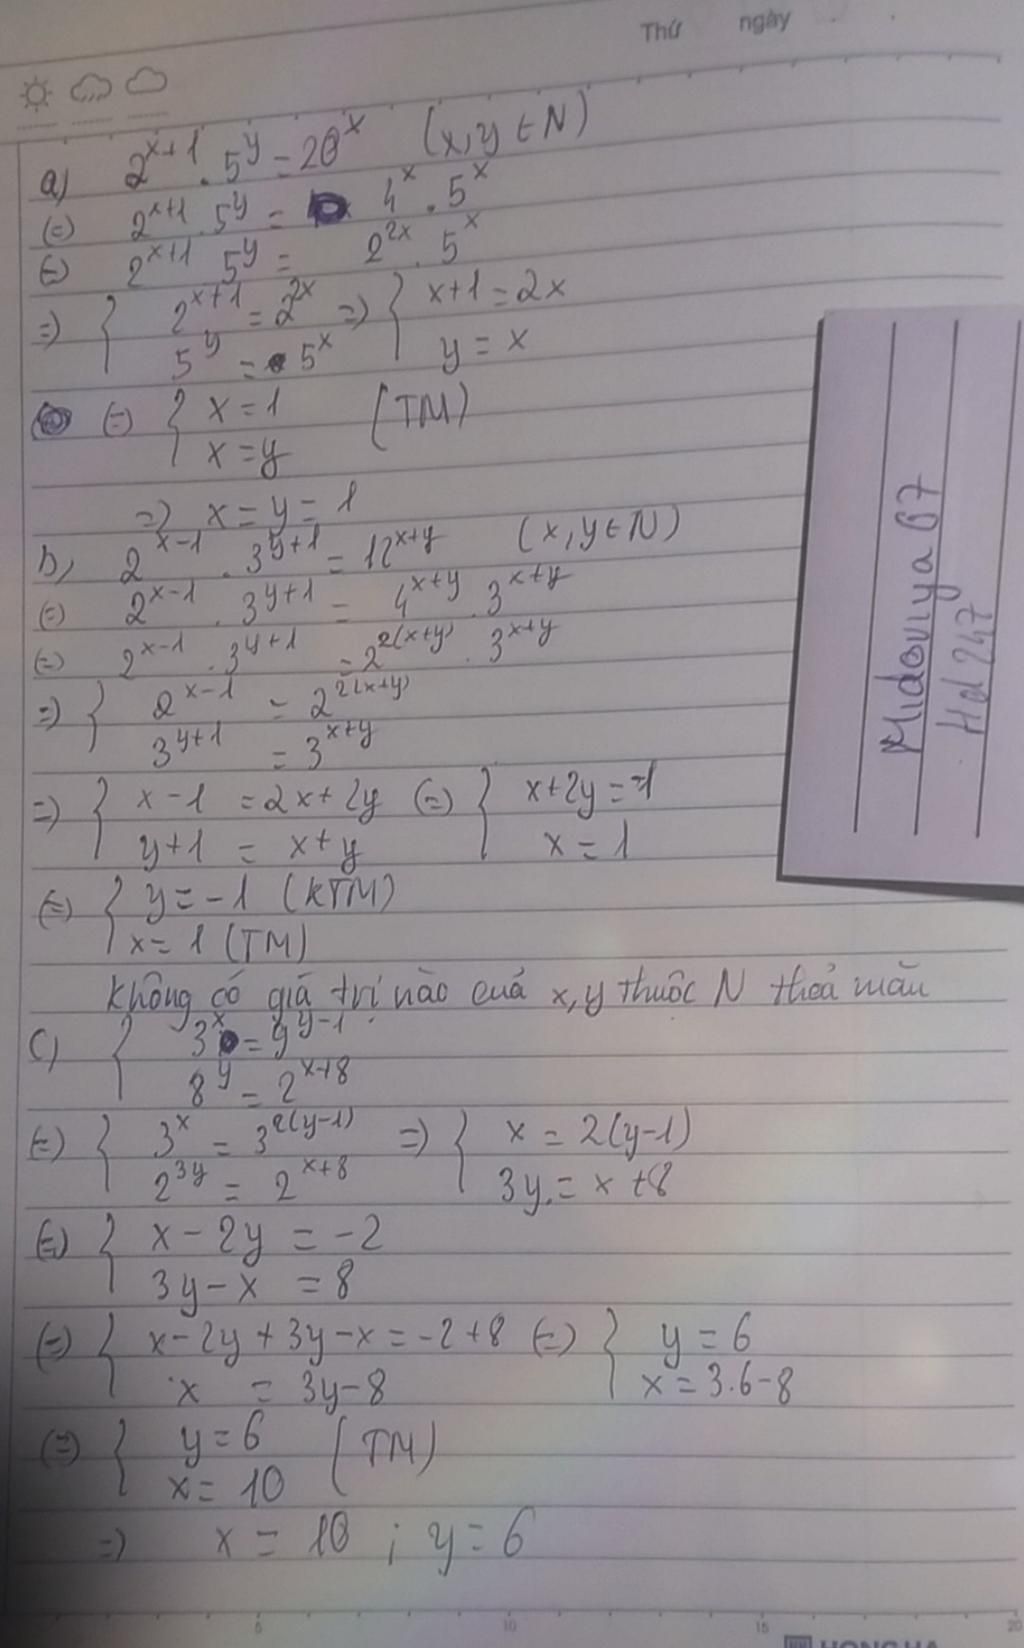 Thứ ngày
a) 2^{x+1} . 5^y = 20^x (x, y ∈ N)
(=) 2^{x+1} . 5^y = 4^x . 5^x
(=) 2^{x+1} 5^y = 2^{2x} . 5^x
=) { 2^{x+1} = 2^{2x} =) { x+1 = 2x
5^y = 5^x y = x
(=) { x = 1 (TM)
x = y
=) x = y = 1
b, 2^{x-1} . 3^{y+1} = 12^{x+y} (x, y ∈ N)
(=) 2^{x-1} . 3^{y+1} = 4^{x+y} . 3^{x+y}
(=) 2^{x-1} . 3^{y+1} = 2^{2(x+y)} . 3^{x+y}
=) { 2^{x-1} = 2^{2(x+y)}
3^{y+1} = 3^{x+y}
=) { x-1 = 2x+2y (=) { x+2y = -1
y+1 = x+y x = 1
(=) { y = -1 (KTM)
x = 1 (TM)
Không có giá trị nào cuả x, y thuộc N thoả mãn
c) { 3^x = 9^{y-1}
8^y = 2^{x+8}
(=) { 3^x = 3^{2(y-1)} =) { x = 2(y-1)
2^{3y} = 2^{x+8} 3y = x+8
(=) { x - 2y = -2
3y - x = 8
(=) { x - 2y + 3y - x = -2+8 (=) { y = 6
x = 3y-8 x = 3.6-8
(=) { y = 6 (TM)
x = 10
=) x = 10 ; y = 6
Midoriya 07
Hd 247
5 10 15 20
HONG HA